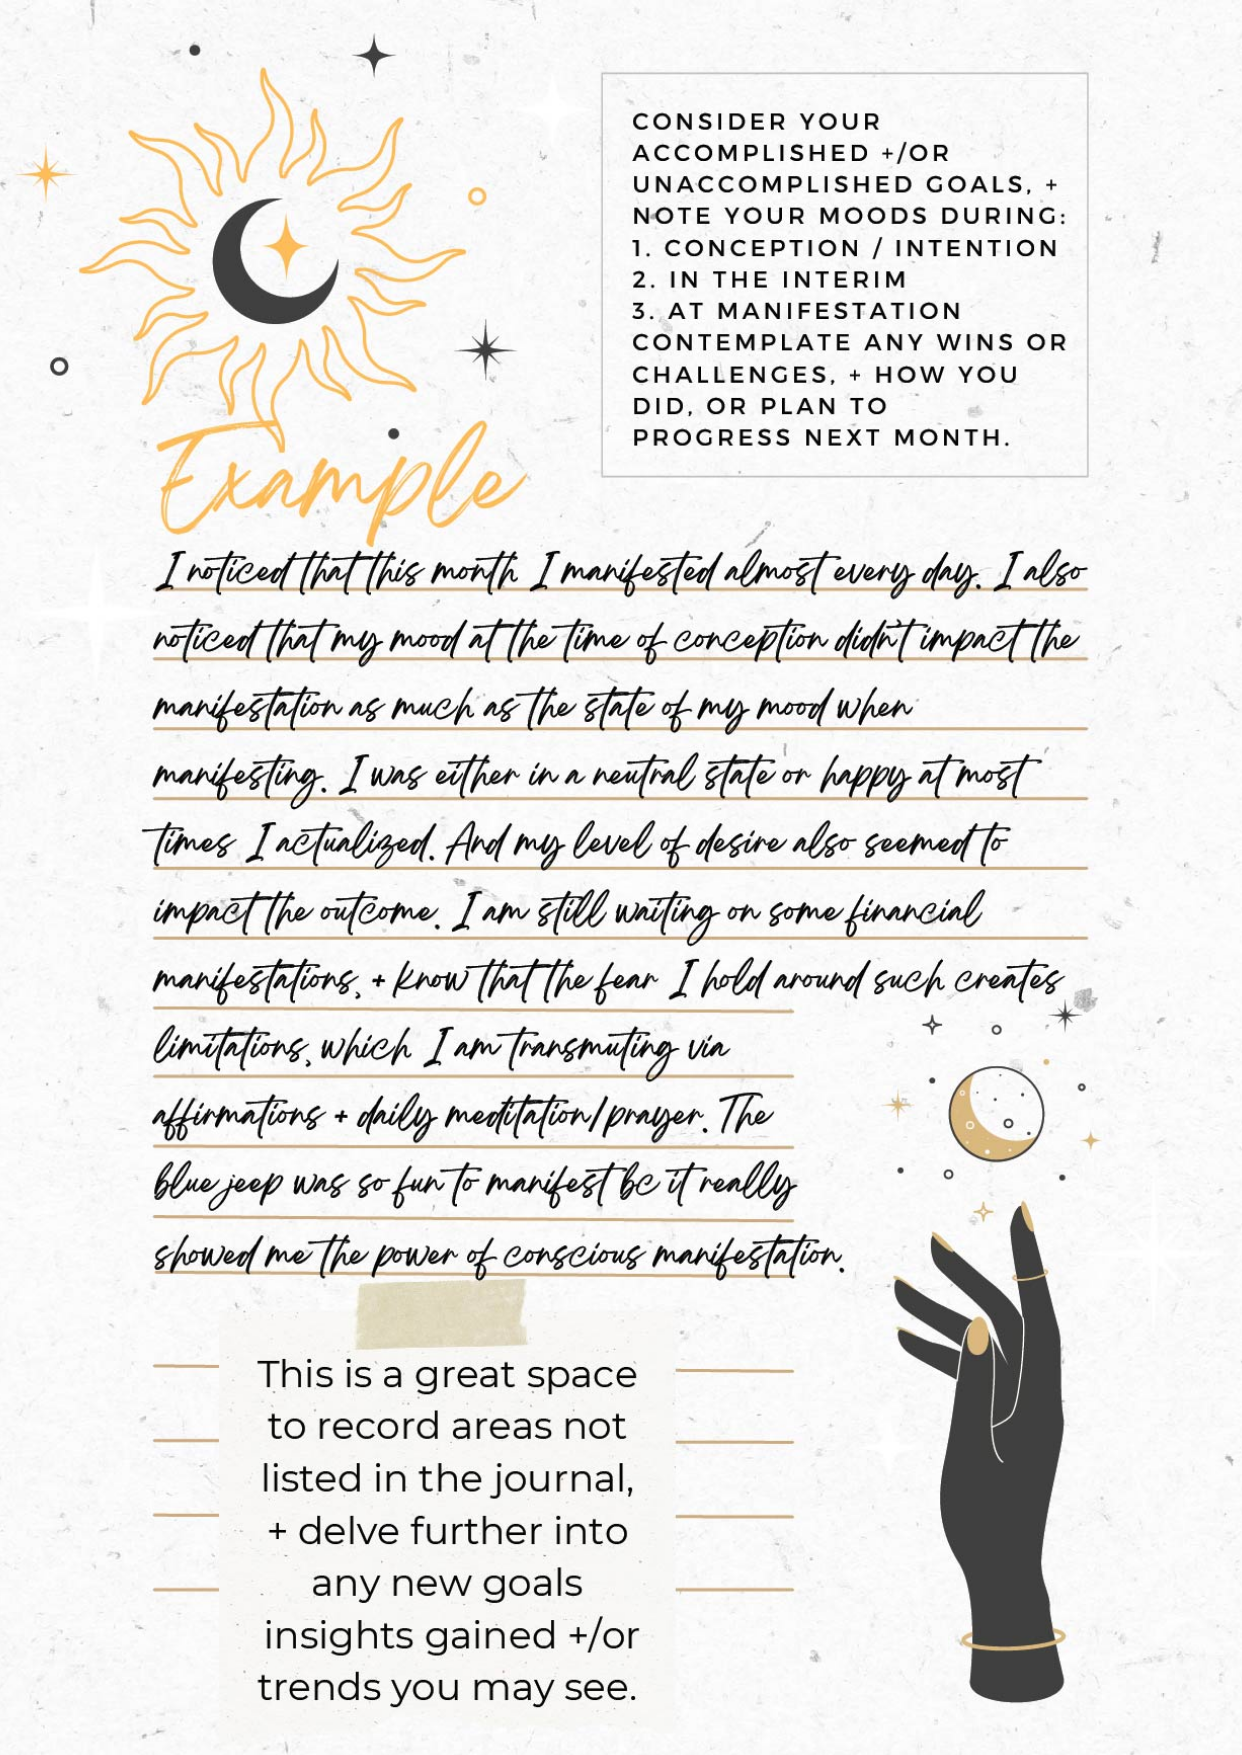 CONSIDER YOUR
ACCOMPLISHED +/OR
UNACCOMPLISHED GOALS, +
NOTE YOUR MOODS DURING:
1. CONCEPTION / INTENTION
2. IN THE INTERIM
3. AT MANIFESTATION
CONTEMPLATE ANY WINS OR
CHALLENGES, + HOW YOU
DID, OR PLAN TO
PROGRESS NEXT MONTH.
Example
I noticed that this month I manifested almost every day. I also
noticed that my mood at the time of conception didn't impact the
manifestation as much as the state of my mood when
manifesting. I was either in a neutral state or happy at most
times I actualized. And my level of desire also seemed to
impact the outcome. I am still waiting on some financial
manifestations, + know that the fear I hold around such creates
limitations, which I am transmuting via
affirmations + daily meditation/prayer. The
blue jeep was so fun to manifest bc it really
showed me the power of conscious manifestation.
This is a great space
to record areas not
listed in the journal,
+ delve further into
any new goals
insights gained +/or
trends you may see.